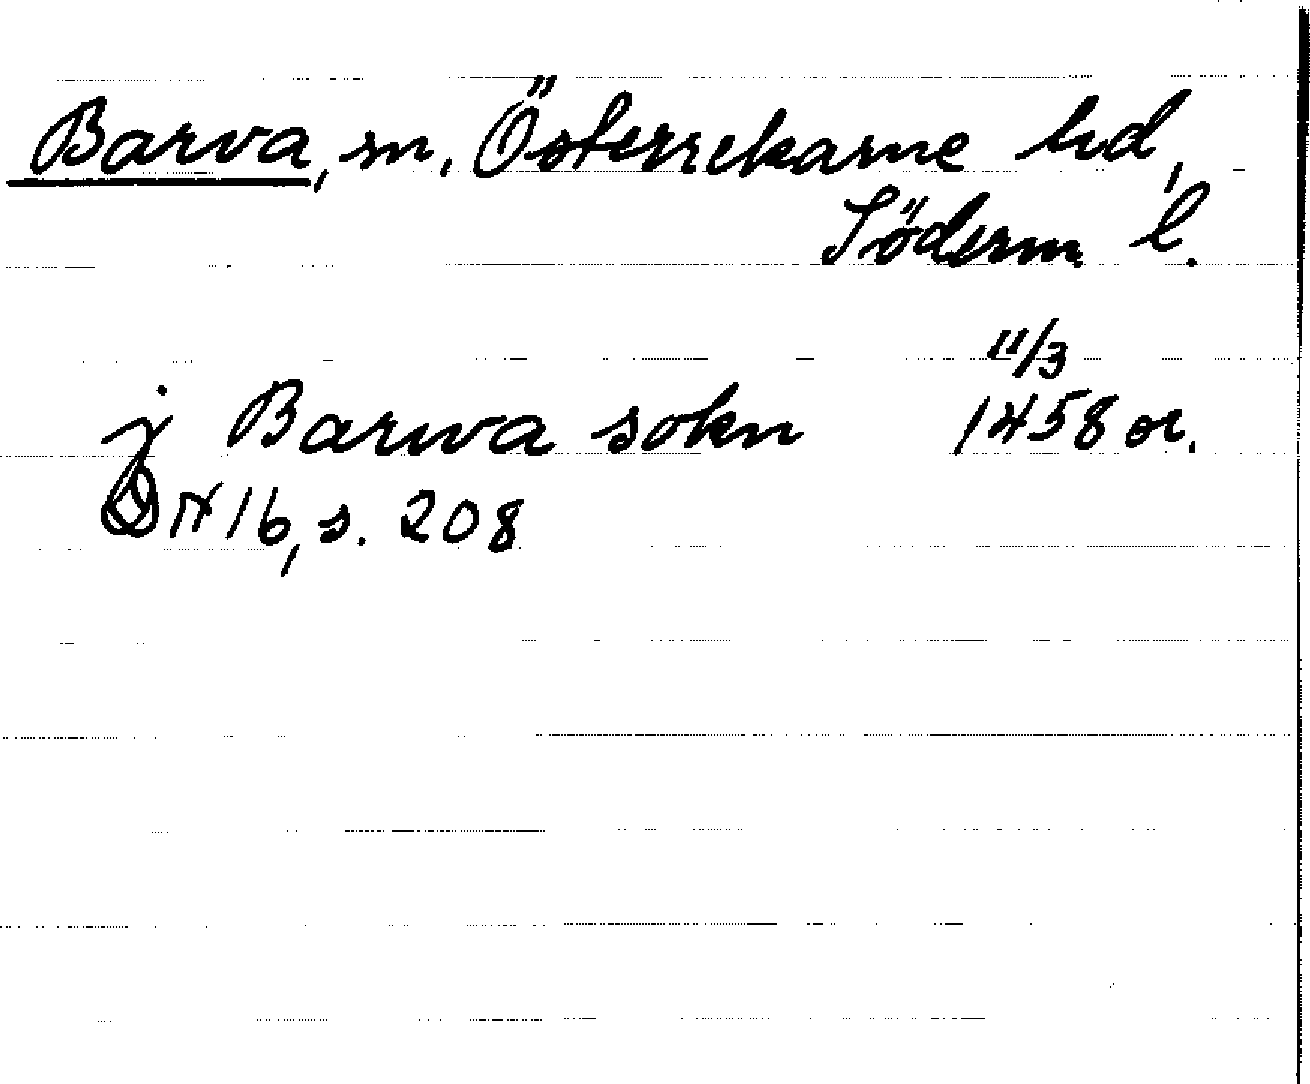 Barva, sn, Österrekarne hd,
Söderm l.
11/3
j Barwa sokn 1458 or.
DN 16, s. 208